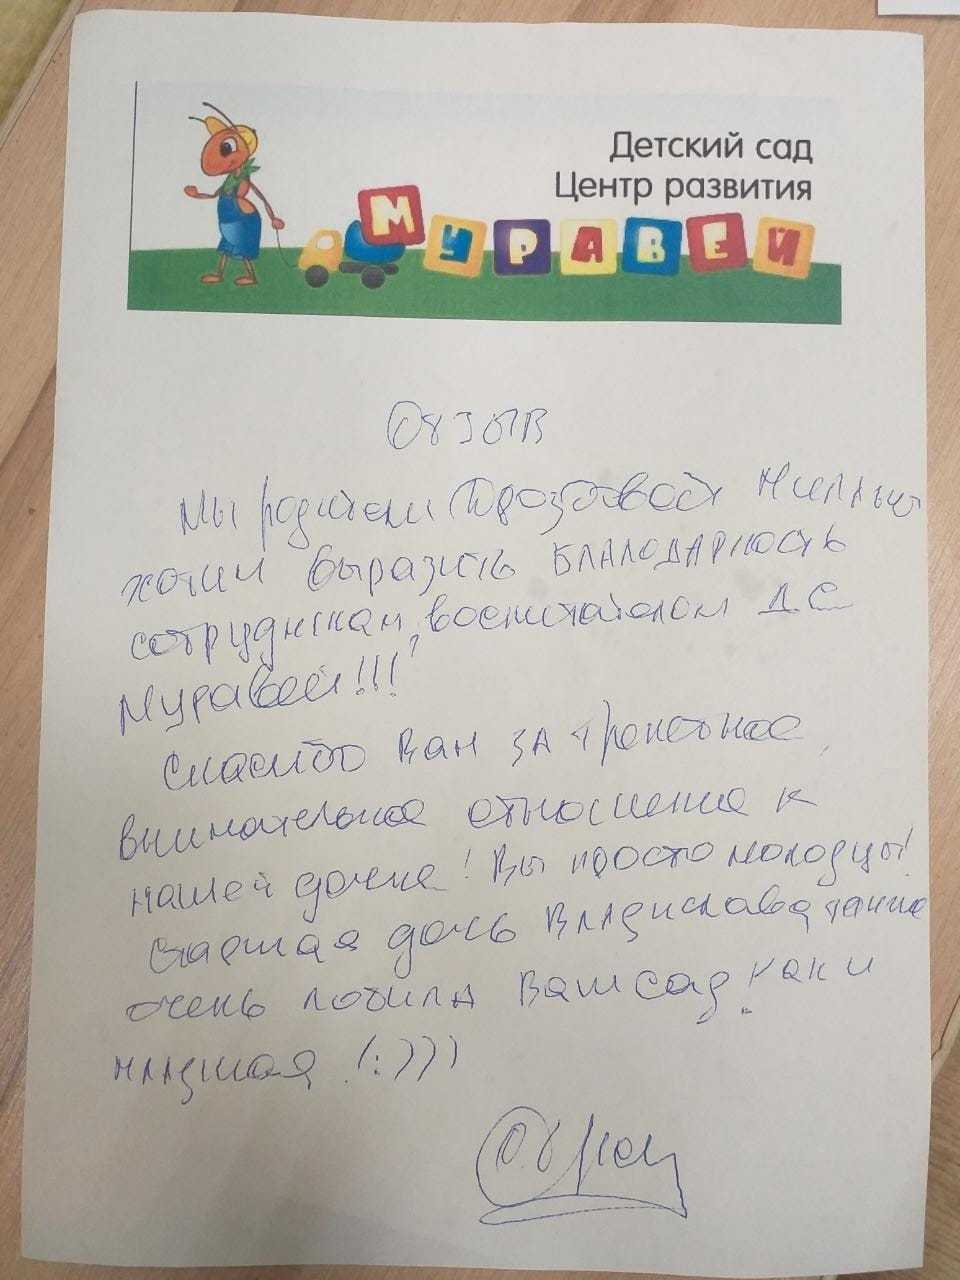 Детский сад
Центр развития
МУРАВЕЙ
Отзыв
Мы родители Дроздовой
хотим выразить благодарность
сотрудникам, воспитателям Д.С.
Муравей!!!
Спасибо Вам за трепетное,
внимательное отношение к
нашей дочке! Вы просто молодцы!
Старшая дочь Владислава также
очень любила Ваш сад, как и
младшая! :)))